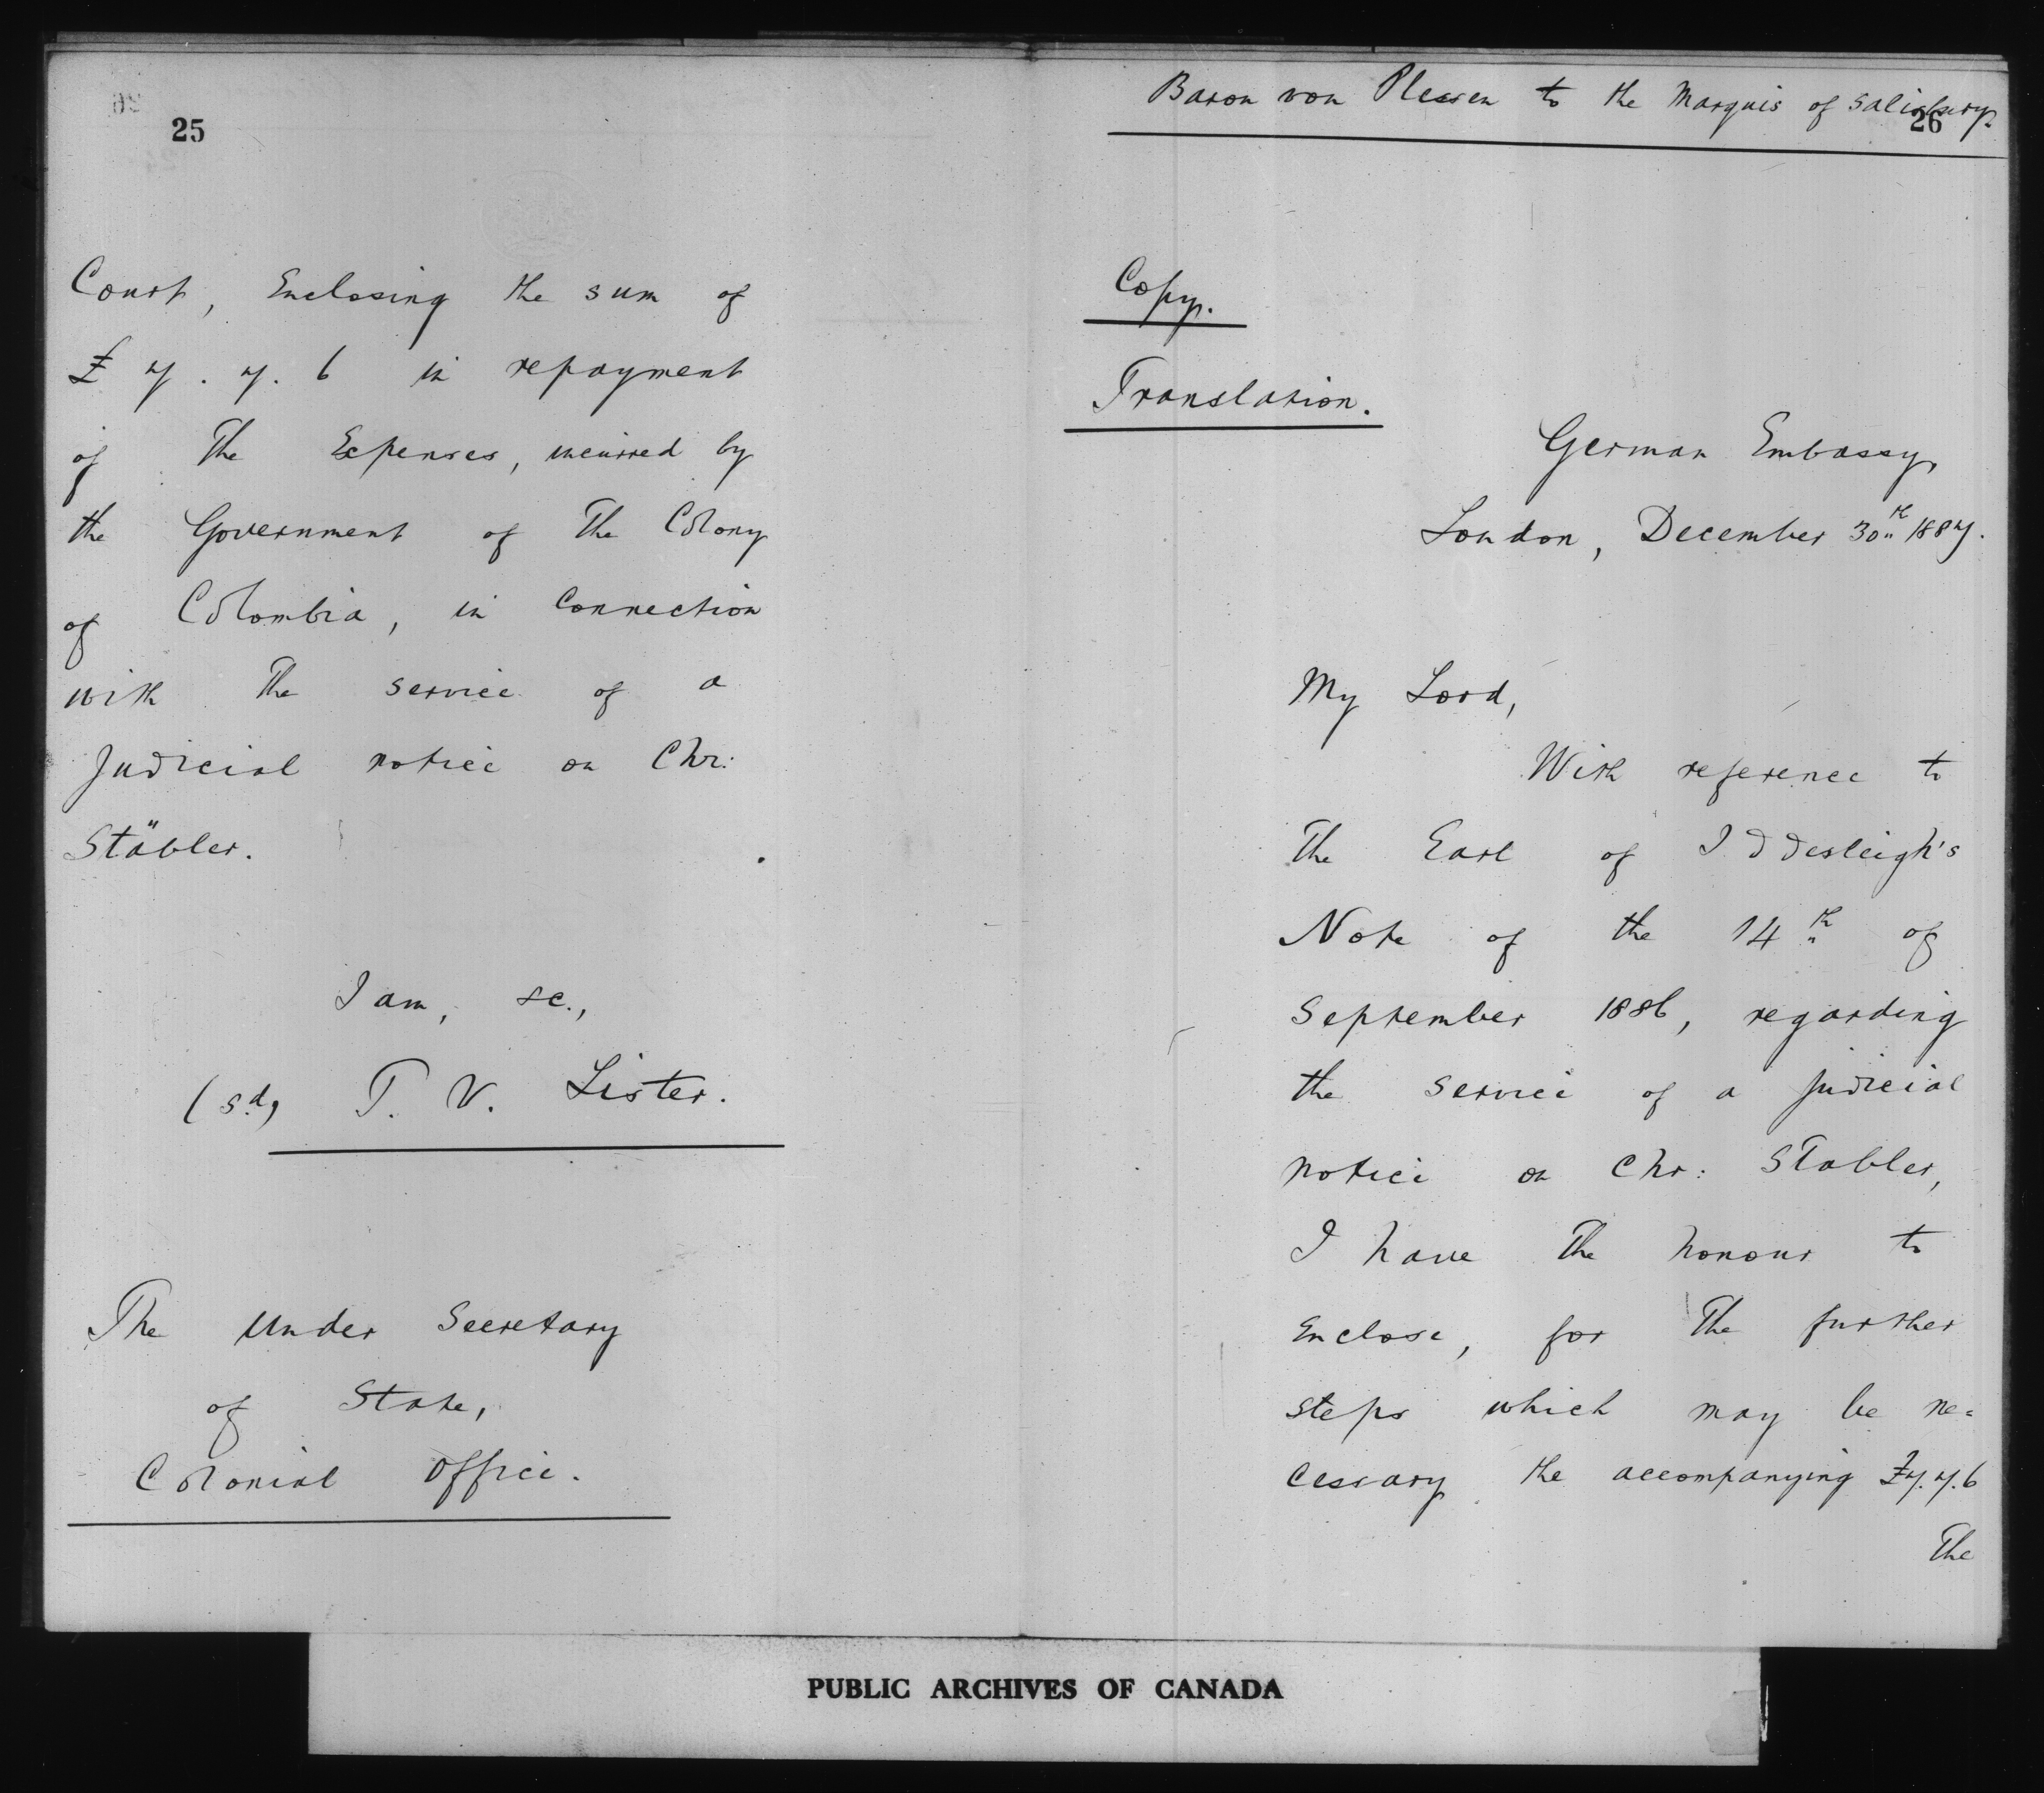 25
Court, Enclosing the sum of
£ 7. 7. 6 in repayment
of the Expenses, incurred by
the Government of the Colony
of Colombia, in Connection
with the service of a
Judicial notice on Chr:
Stäbler.
I am, &c.,
(sd) T. V. Lister.
The Under Secretary
of State,
Colonial Office.
Baron von Plessen to the Marquis of Salisbury.
26
Copy.
Translation.
German Embassy,
London, December 30th 1887.
My Lord,
With reference to
the Earl of Iddesleigh's
Note of the 14th of
September 1886, regarding
the service of a judicial
notice on Chr: Stabler,
I have the honour to
Enclose, for the further
steps which may be ne=
cessary the accompanying £7.7.6
The
PUBLIC ARCHIVES OF CANADA